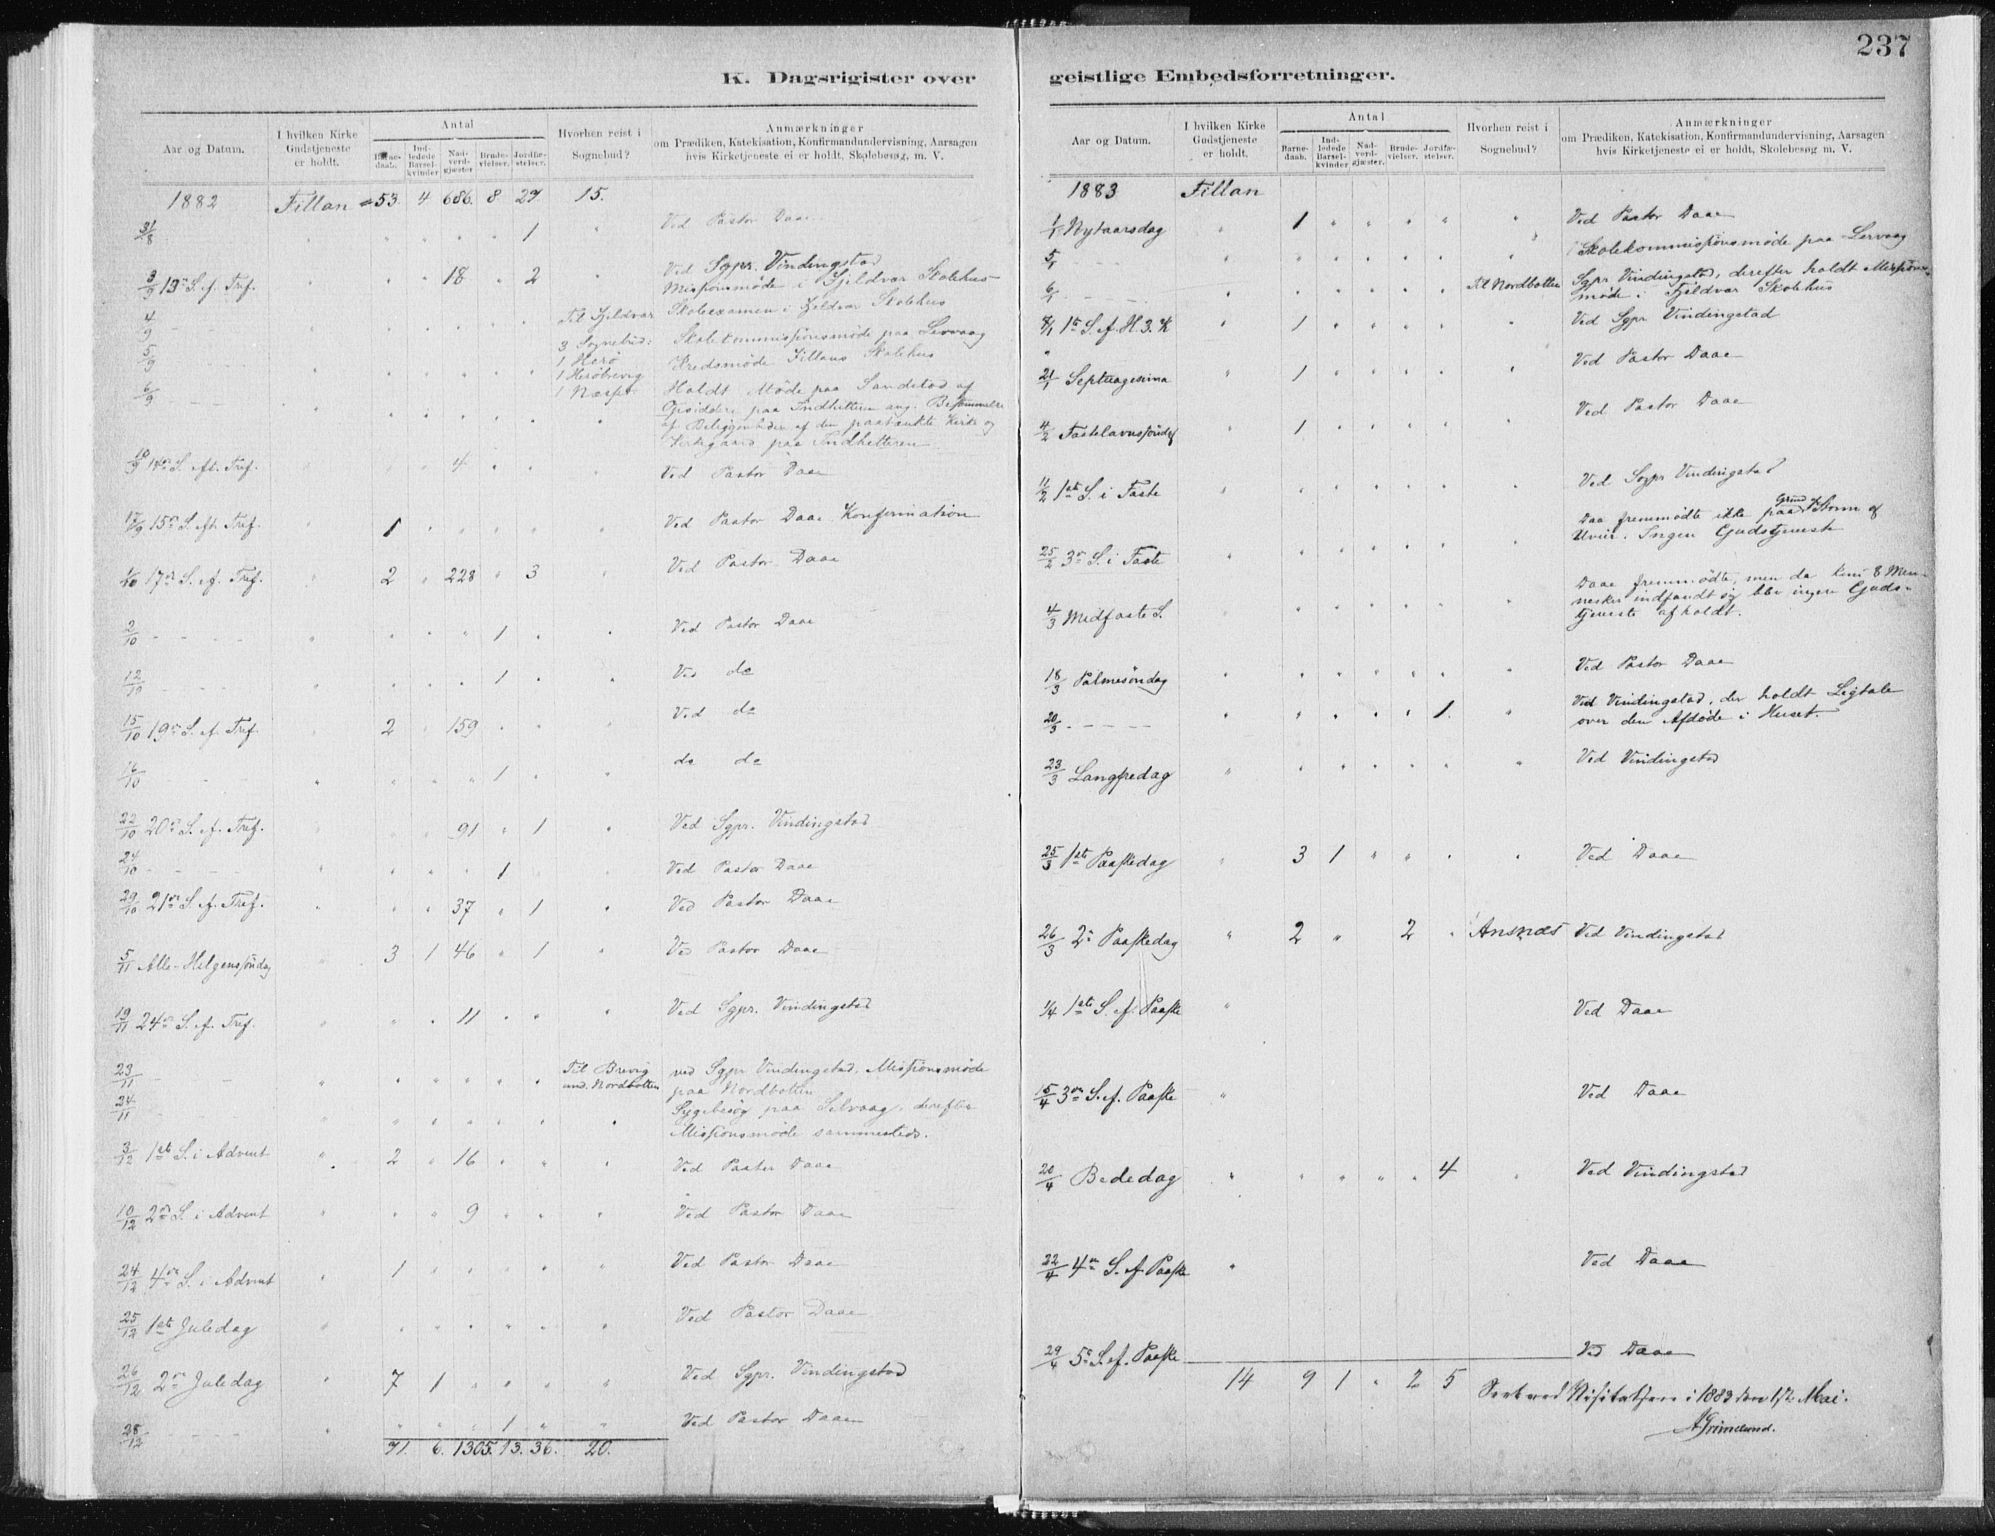 237
K. Dagsrigister over geistlige Embedsforretninger.
Aar og Datum. I hvilken Kirke Gudstjeneste er holdt. Antal Hvorhen reist i Sognebud? Anmærkninger
om Prædiken, Katekisation, Konfirmandundervisning, Aarsagen hvis Kirketjeneste ei er holdt, Skolebesøg, m. V.
Barnedaab. Indledede Barselkvinder Nadverdgjæster Brudevielser. Jordfæstelser.
1882 Fillan 53. 4 686. 8 27. 15.
31/8 " " " " " 1 " Ved Pastor Daae
3/9 13de S. ef. Tref. " " 18 " 2 " Ved Sgpr. Vindingstad
Missionsmøde i Fjildvær Skolehus
4/9 - - - Til Fjeldvær Skoleexamen i Fjeldvær Skolehus
5/9 - - - 3 Sognebud: Skolekommissionsmøde paa Lervaag
1 Herø Kredsmøde Fillans Skolehus
1 Herøbrevig
6/9 1 Næsset Holdt Møde paa Sandstad af
Opsiddere paa Indhitteren ang. Bestemmelse
af Beliggenheden af den paatænkte Kirke og
Kirkegaard paa Indhitteren
10/9 14de S. eft. Tref. " " 4 " " " Ved Pastor Daae
17/9 15de S. eft. Tref. 1 " " " " " Ved Pastor Daae Konfirmation
1/10 17de S. ef. Tref. " 2 " 228 " 3 " Ved Pastor Daae
2/10 - - - " " " " 1 " " Ved Pastor Daae
12/10 - - - " " " " 1 " " Ved do
15/10 19de S. ef. Tref. 2 " 159 " " " Ved do
16/10 - - - " " " " 1 " " do do
22/10 20de S. ef. Tref. " " 91 " 1 " Ved Sgpr. Vindingstad
24/10 - - - " " " " 1 " " Ved Pastor Daae
29/10 21de S. ef. Tref. " " " 37 " 1 " Ved Pastor Daae
5/11 Alle-Helgenssöndag " 3 1 46 " 1 " Ved Pastor Daae
19/11 24de S. ef. Tref. " " " 11 " " " Ved Sgpr. Vindingstad
23/11 - - - " " " " " " Til Brevig ved Sgpr Vindingstad, Missionsmøde
und. Nordbotten paa Nordbotten
24/11 - " " " " " " " Sygebesøg paa Selvaag, derefter
Missionsmøde sammesteds.
3/12 1ste S. i Advent " 2 " 16 " " " Ved Pastor Daae
10/12 2den S. i Advent " " " 9 " " " Ved Pastor Daae
24/12 4de S. i Advent " 1 " " " " " Ved Pastor Daae
25/12 1ste Juledag " " " " " " " Ved Pastor Daae
26/12 2den Juledag " 7 1 " " " " Ved Sgpr. Vindingstad
28/12 - - - " " " " 1 " " Ved Pastor Daae
71. 6. 1305. 13. 36. 20.
Aar og Datum. I hvilken Kirke Gudstjeneste er holdt. Antal Hvorhen reist i Sognebud? Anmærkninger
om Prædiken, Katekisation, Konfirmandundervisning, Aarsagen hvis Kirketjeneste ei er holdt, Skolebesøg m. V.
Barnedaab. Indledede Barselkvinder Nadverdgjæster. Brudevielser. Jordfæstelser.
1883 Fillan
1/1 Nytaarsdag " 1 " " " " " Ved Pastor Daae
5/1 - - - Skolekommissionsmøde paa Lervaag
6/1 - - - " " " " " " Til Nordbotten Sgpr Vindingstad, derefter holdt Missions-
møde i Fjildvær Skolehus
7/1 1ste S. ef. H. 3. K " 1 " " " " " Ved Sgpr Vindingstad
21/1 Septuagesima " 1 " " " " " Ved Pastor Daae
4/2 Fastelavnssöndag " 1 " " " " " Ved Pastor Daae
11/2 1ste S. i Faste " " " " " " " Ved Sogpr Vindingstad
25/2 3de S. i Faste " " " " " " " Daa fremmødte ikke paa Grund af Storm og
Uveir. Ingen Gudstjeneste
4/3 Midfaste S. " " " " " " Daae fremmødte, men da kun 8 Men-
nesker indfandt sig blev ingen Guds-
tjeneste afholdt.
18/3 Palmesöndag " " " " " " " Ved Pastor Daae
20/3 - - - - " " " " " 1. " Ved Vindingstad, der holdt Ligtale
over den Afdøde i Huset.
23/3 Langfredag " " " " " " " Ved Vindingstad
25/3 1ste Paaskedag " 3 1 " " " " Ved Daae
26/3 2den Paaskedag " 2 " 2 " Ansnæs Ved Vindingstad
1/4 1ste S. ef. Paaske " Ved Daae
15/4 3de S. ef. Paaske " Ved Daae
20/4 Bededag " " " " " 4 " Ved Vindingstad
22/4 4de S. ef. Paaske " Ved Daae
29/4 5te S. ef. Paaske Ved Daae
14 9 1 " 2 5 Seet ved Visitatsen i 1883 den 1/2 Mai.
AGrimelund.